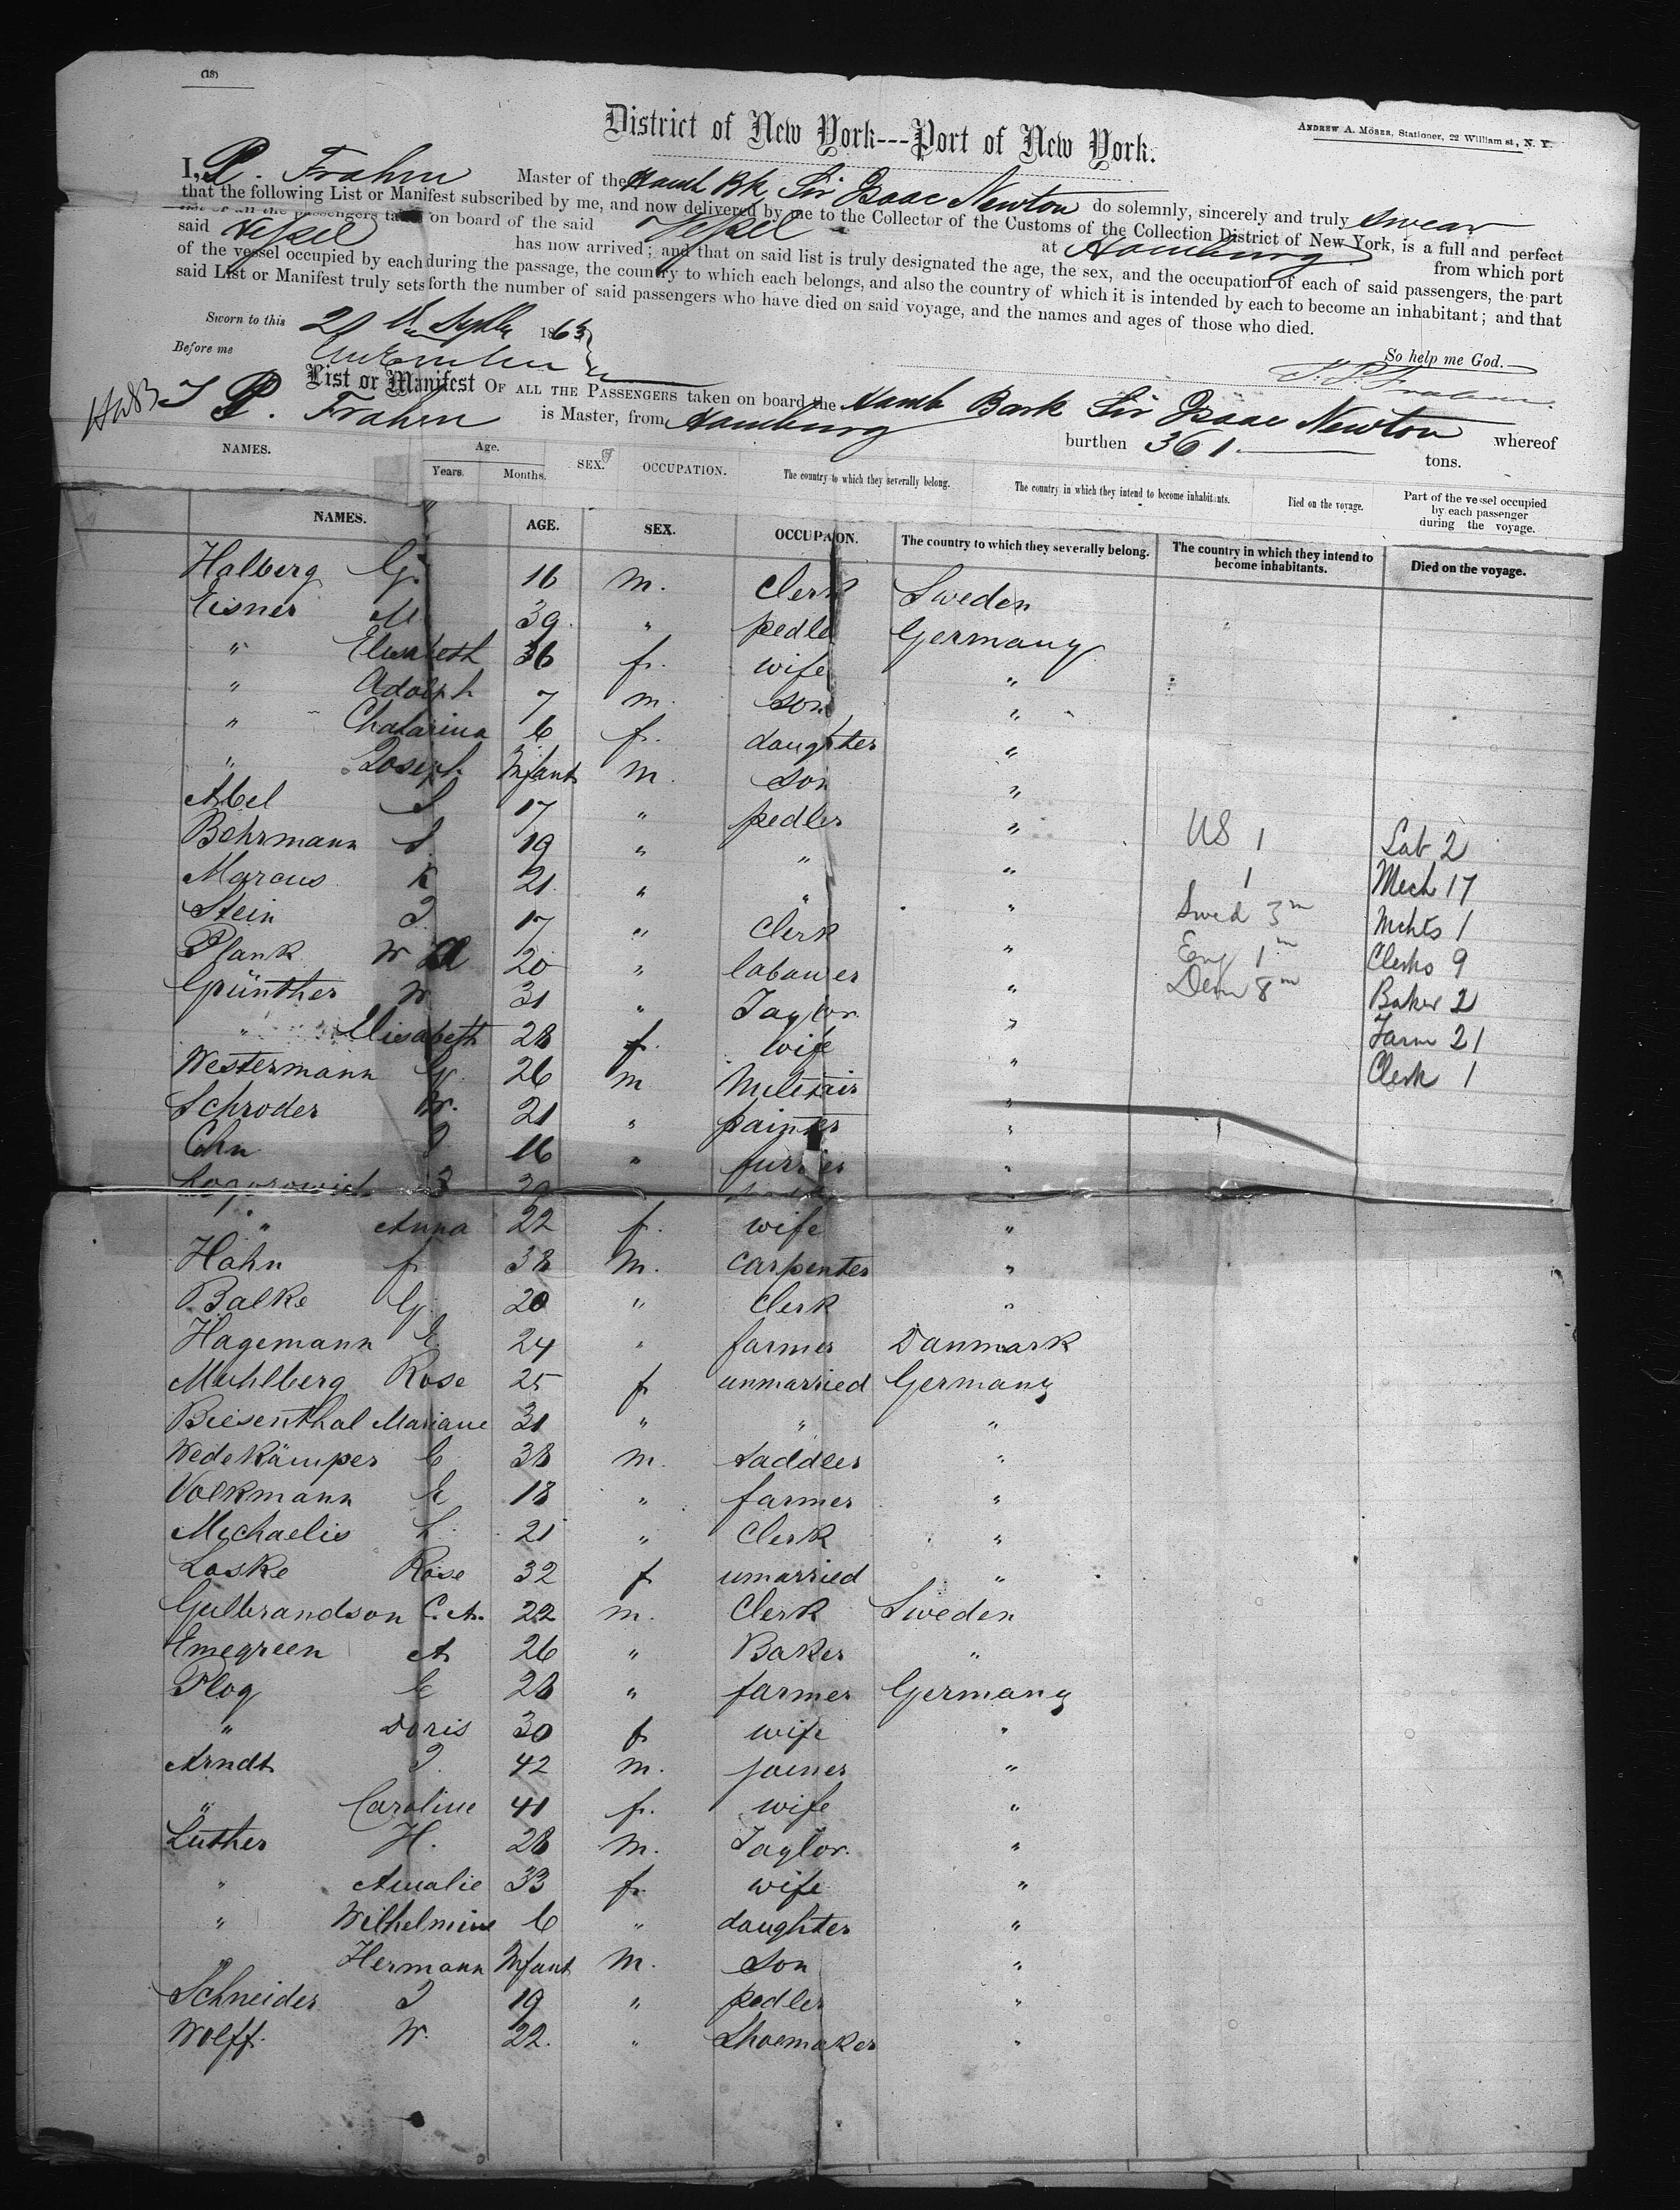 (18)
District of New York---Port of New York.
ANDREW A. MÖSER, Stationer, 22 William st, N. Y.
I, P. Frahm Master of the Hamb Bk Sir Isaac Newton do solemnly, sincerely and truly swear
that the following List or Manifest subscribed by me, and now delivered by me to the Collector of the Customs of the Collection District of New York, is a full and perfect
list of all the passengers taken on board of the said Vessel at Hamburg from which port
said Vessel has now arrived; and that on said list is truly designated the age, the sex, and the occupation of each of said passengers, the part
of the vessel occupied by each during the passage, the country to which each belongs, and also the country of which it is intended by each to become an inhabitant; and that
said List or Manifest truly sets forth the number of said passengers who have died on said voyage, and the names and ages of those who died.
So help me God.
Sworn to this 1863
Before me
List or Manifest OF ALL THE PASSENGERS taken on board the Hamb Bark Sir Isaac Newton whereof
P. Frahm is Master, from Hamburg burthen 361 tons.
NAMES. Age. Years. Months. SEX. OCCUPATION. The country to which they severally belong. The country in which they intend to become inhabitants. Died on the voyage. Part of the vessel occupied by each passenger during the voyage.
NAMES. AGE. SEX. OCCUPATION. The country to which they severally belong. The country in which they intend to become inhabitants. Died on the voyage.
Halberg G. 16 m. Clerk Sweden
Eisner M. 39 " pedler Germany
" Elisabeth 36 f. wife "
" Adolph 7 m. son "
" Chatarina 6 f. daughter "
" Joseph Infant m. son "
Abel S 17 " pedler "
Behrmann S. 19 " " " US 1 Lab 2
Marcus K 21 " " " 1 Mech 17
Stein J 17 " Clerk " Swed 3 m Mchts 1
Plank W A 20 " labauer " Eng 1 m Clerks 9
Günther W 31 " Taylor " Den 8 m Baker 2
" Elisabeth 28 f. wife " Farm 21
Westermann G. 26 m Miletair " Clerk 1
Schroder W. 21 " painter "
Cohn J 16 " furrier "
" Anna 22 f. wife "
Hahn f 38 m. Carpenter "
Balke G. 20 " Clerk "
Hagemann E. 24 " farmer Danmark
Muhlberg Rose 25 f unmarried Germany
Biesenthal Mariane 31 " " "
Wedekämper C 38 m. saddler "
Volkmann E 18 " farmer "
Mychaelis L. 21 " Clerk "
Laske Rose 32 f unmarried "
Gulbrandson C. A. 22 m. Clerk Sweden
Emegreen A 26 " Baker "
Plog E 28 " farmer Germany
" Doris 30 f. wife "
Arndt J. 42 m. joiner "
" Caroline 41 f. wife "
Luther H. 28 m. Taylor. "
" Amalie 33 f. wife "
" Wilhelmine 6 " daughter "
" Hermann Infant m. son "
Schneider J 19 " pedler "
Wolff. W. 22. " Shoemaker "